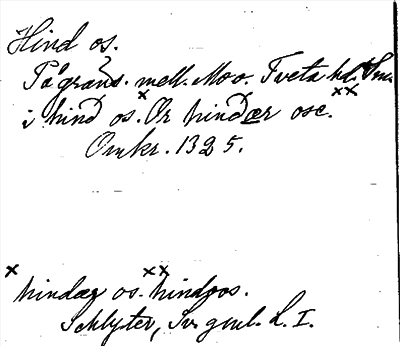 Hind os.
På gräns. mell. Mo o. Tveta hd. Sm.
i hind os. Or hindær ose.
Omkr. 1325.
x hindær os. xx hindoos.
Schlyter, Sv. gml. L. I.